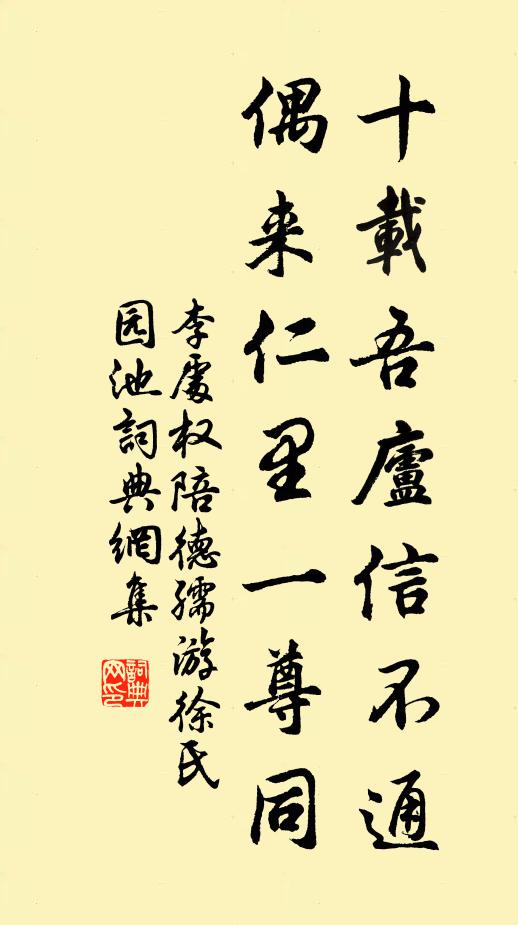 十載吾廬信不通
偶来仁里一尊同
李處权陪德孺游徐氏
园池詞典網集
詞典网印